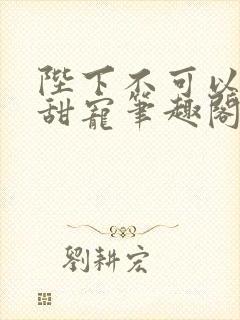 陛下不可以
甜寵筆趣閣
劉耕宏